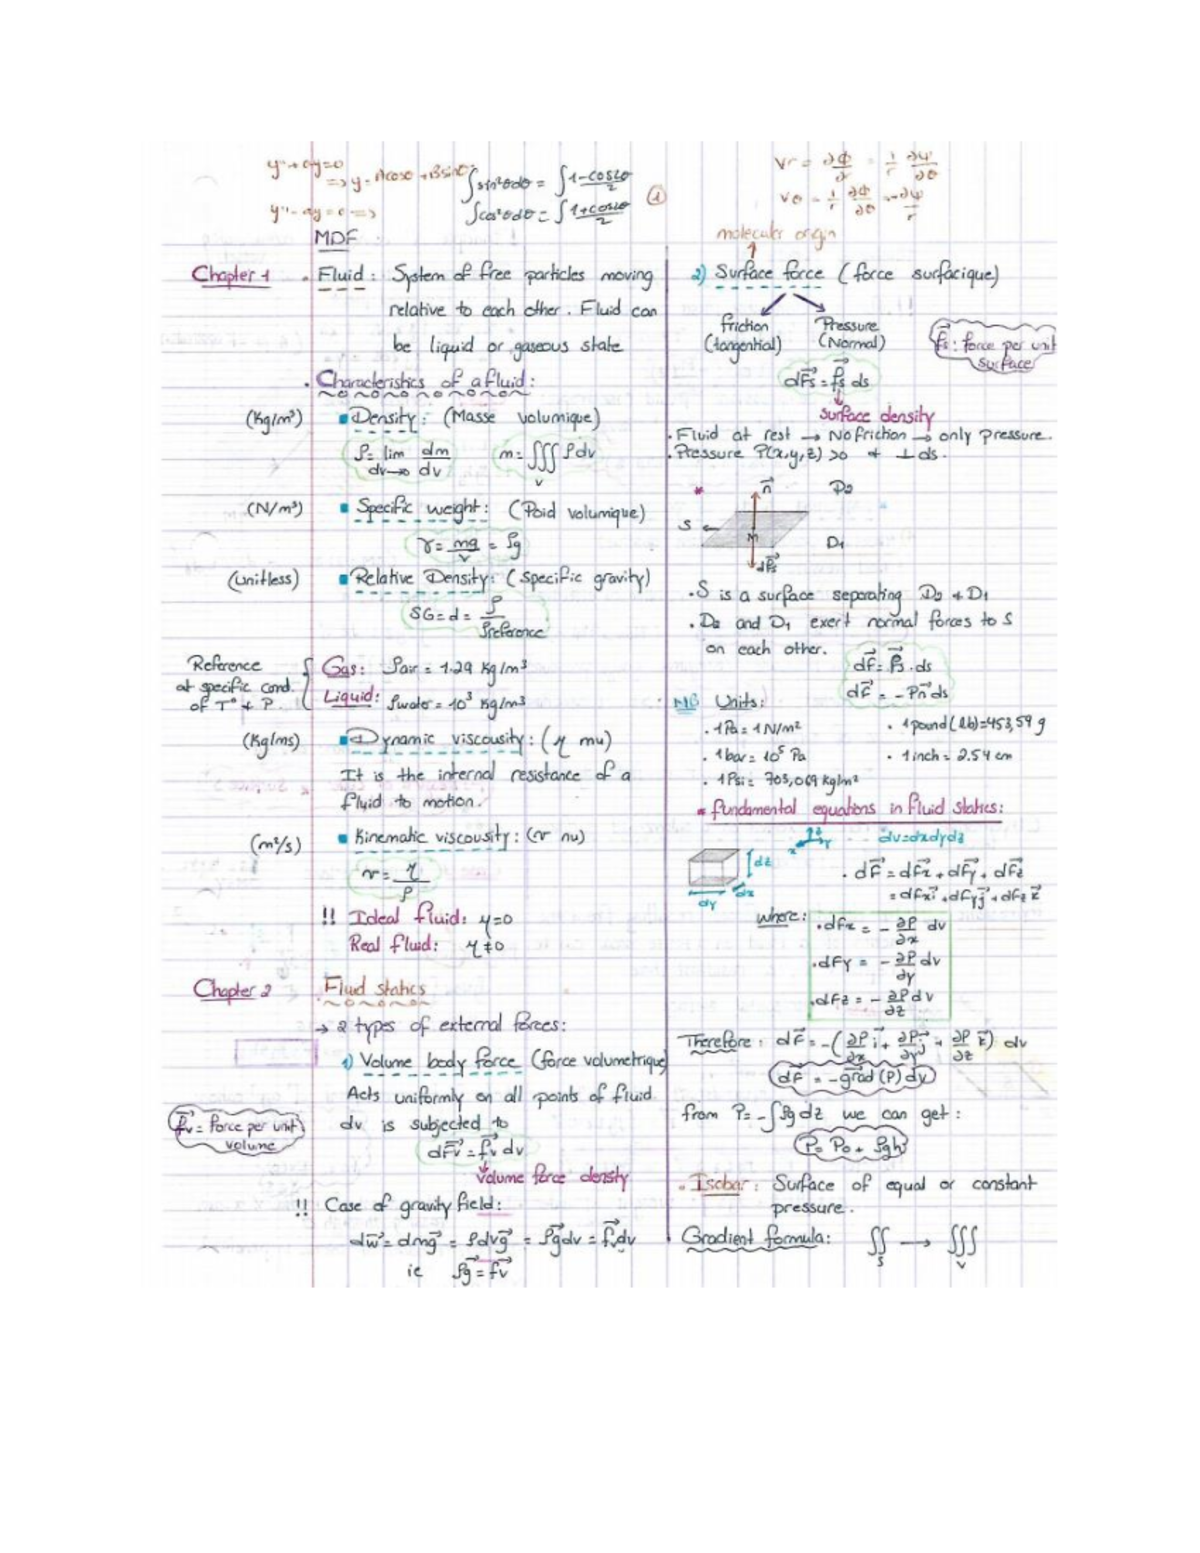 y"+ay=0
=> y= Acosθ +Bsinθ
y"-ay=0 =>
∫sin²θdθ = ∫ 1-cos2θ / 2
∫cos²θdθ = ∫ 1+cos2θ / 2
1
MDF
Chapter 1
. Fluid: System of free particles moving
relative to each other. Fluid can
be liquid or gaseous state
. Characteristics of a fluid:
(Kg/m³) Density: (Masse volumique)
ρ= lim dv→0 dm/dv m= ∭v ρdv
(N/m³) Specific weight: (Poid volumique)
γ= mg/v = ρg
(unitless) Relative Density: (specific gravity)
SG=d= ρ/ρreference
Reference
at specific cond.
of T° & P
Gas: ρair = 1.29 kg/m³
Liquid: ρwater= 10³ kg/m³
(Kg/ms) Dynamic viscousity: (η mu)
It is the internal resistance of a
fluid to motion.
(m²/s) Kinematic viscousity: (ν nu)
ν= η/ρ
!! Ideal fluid: η=0
Real fluid: η≠0
Chapter 2 Fluid statics
→ 2 types of external forces:
1) Volume body force (force volumetrique)
Acts uniformly on all points of fluid
dv is subjected to
fv = force per unit
volume
dFv = fv dv
volume force density
!! Case of gravity field:
dw = dmg = ρdvg = ρgdv = fvdv
ie ρg = fv
Vr = ∂Φ/∂r = 1/r ∂Ψ/∂θ
Vθ = 1/r ∂Φ/∂θ = -∂Ψ/r
molecular origin
2) Surface force (force surfacique)
friction
(tangential)
Pressure
(Normal)
fs: force per unit
surface
dFs = fs ds
surface density
. Fluid at rest → No friction → only pressure.
. Pressure P(x,y,z) >0 & ⊥ ds.
n
D2
S
M
D1
dFs
. S is a surface separating D2 & D1
. D2 and D1 exert normal forces to S
on each other.
dF = Ps . ds
dF = -Pn ds
NB Units:
. 1Pa = 1N/m²
. 1 pound (lb)=453,59 g
. 1bar = 10⁵ Pa
. 1 inch = 2.54 cm
. 1Psi = 703,069 kg/m²
fundamental equations in fluid statics:
z
x
y
dv=dxdydz
dz
dx
dy
. dF = dFx + dFy + dFz
= dFx i + dFy j + dFz k
where: . dFx = - ∂P/∂x dv
. dFy = - ∂P/∂y dv
. dFz = - ∂P/∂z dv
Therefore: dF = -(∂P/∂x i + ∂P/∂y j + ∂P/∂z k) dv
dF = -grad (P) dv
from P= -∫ρg dz we can get:
P= P0 + ρgh
. Isobar: Surface of equal or constant
pressure.
Gradient formula: ∬s → ∭v